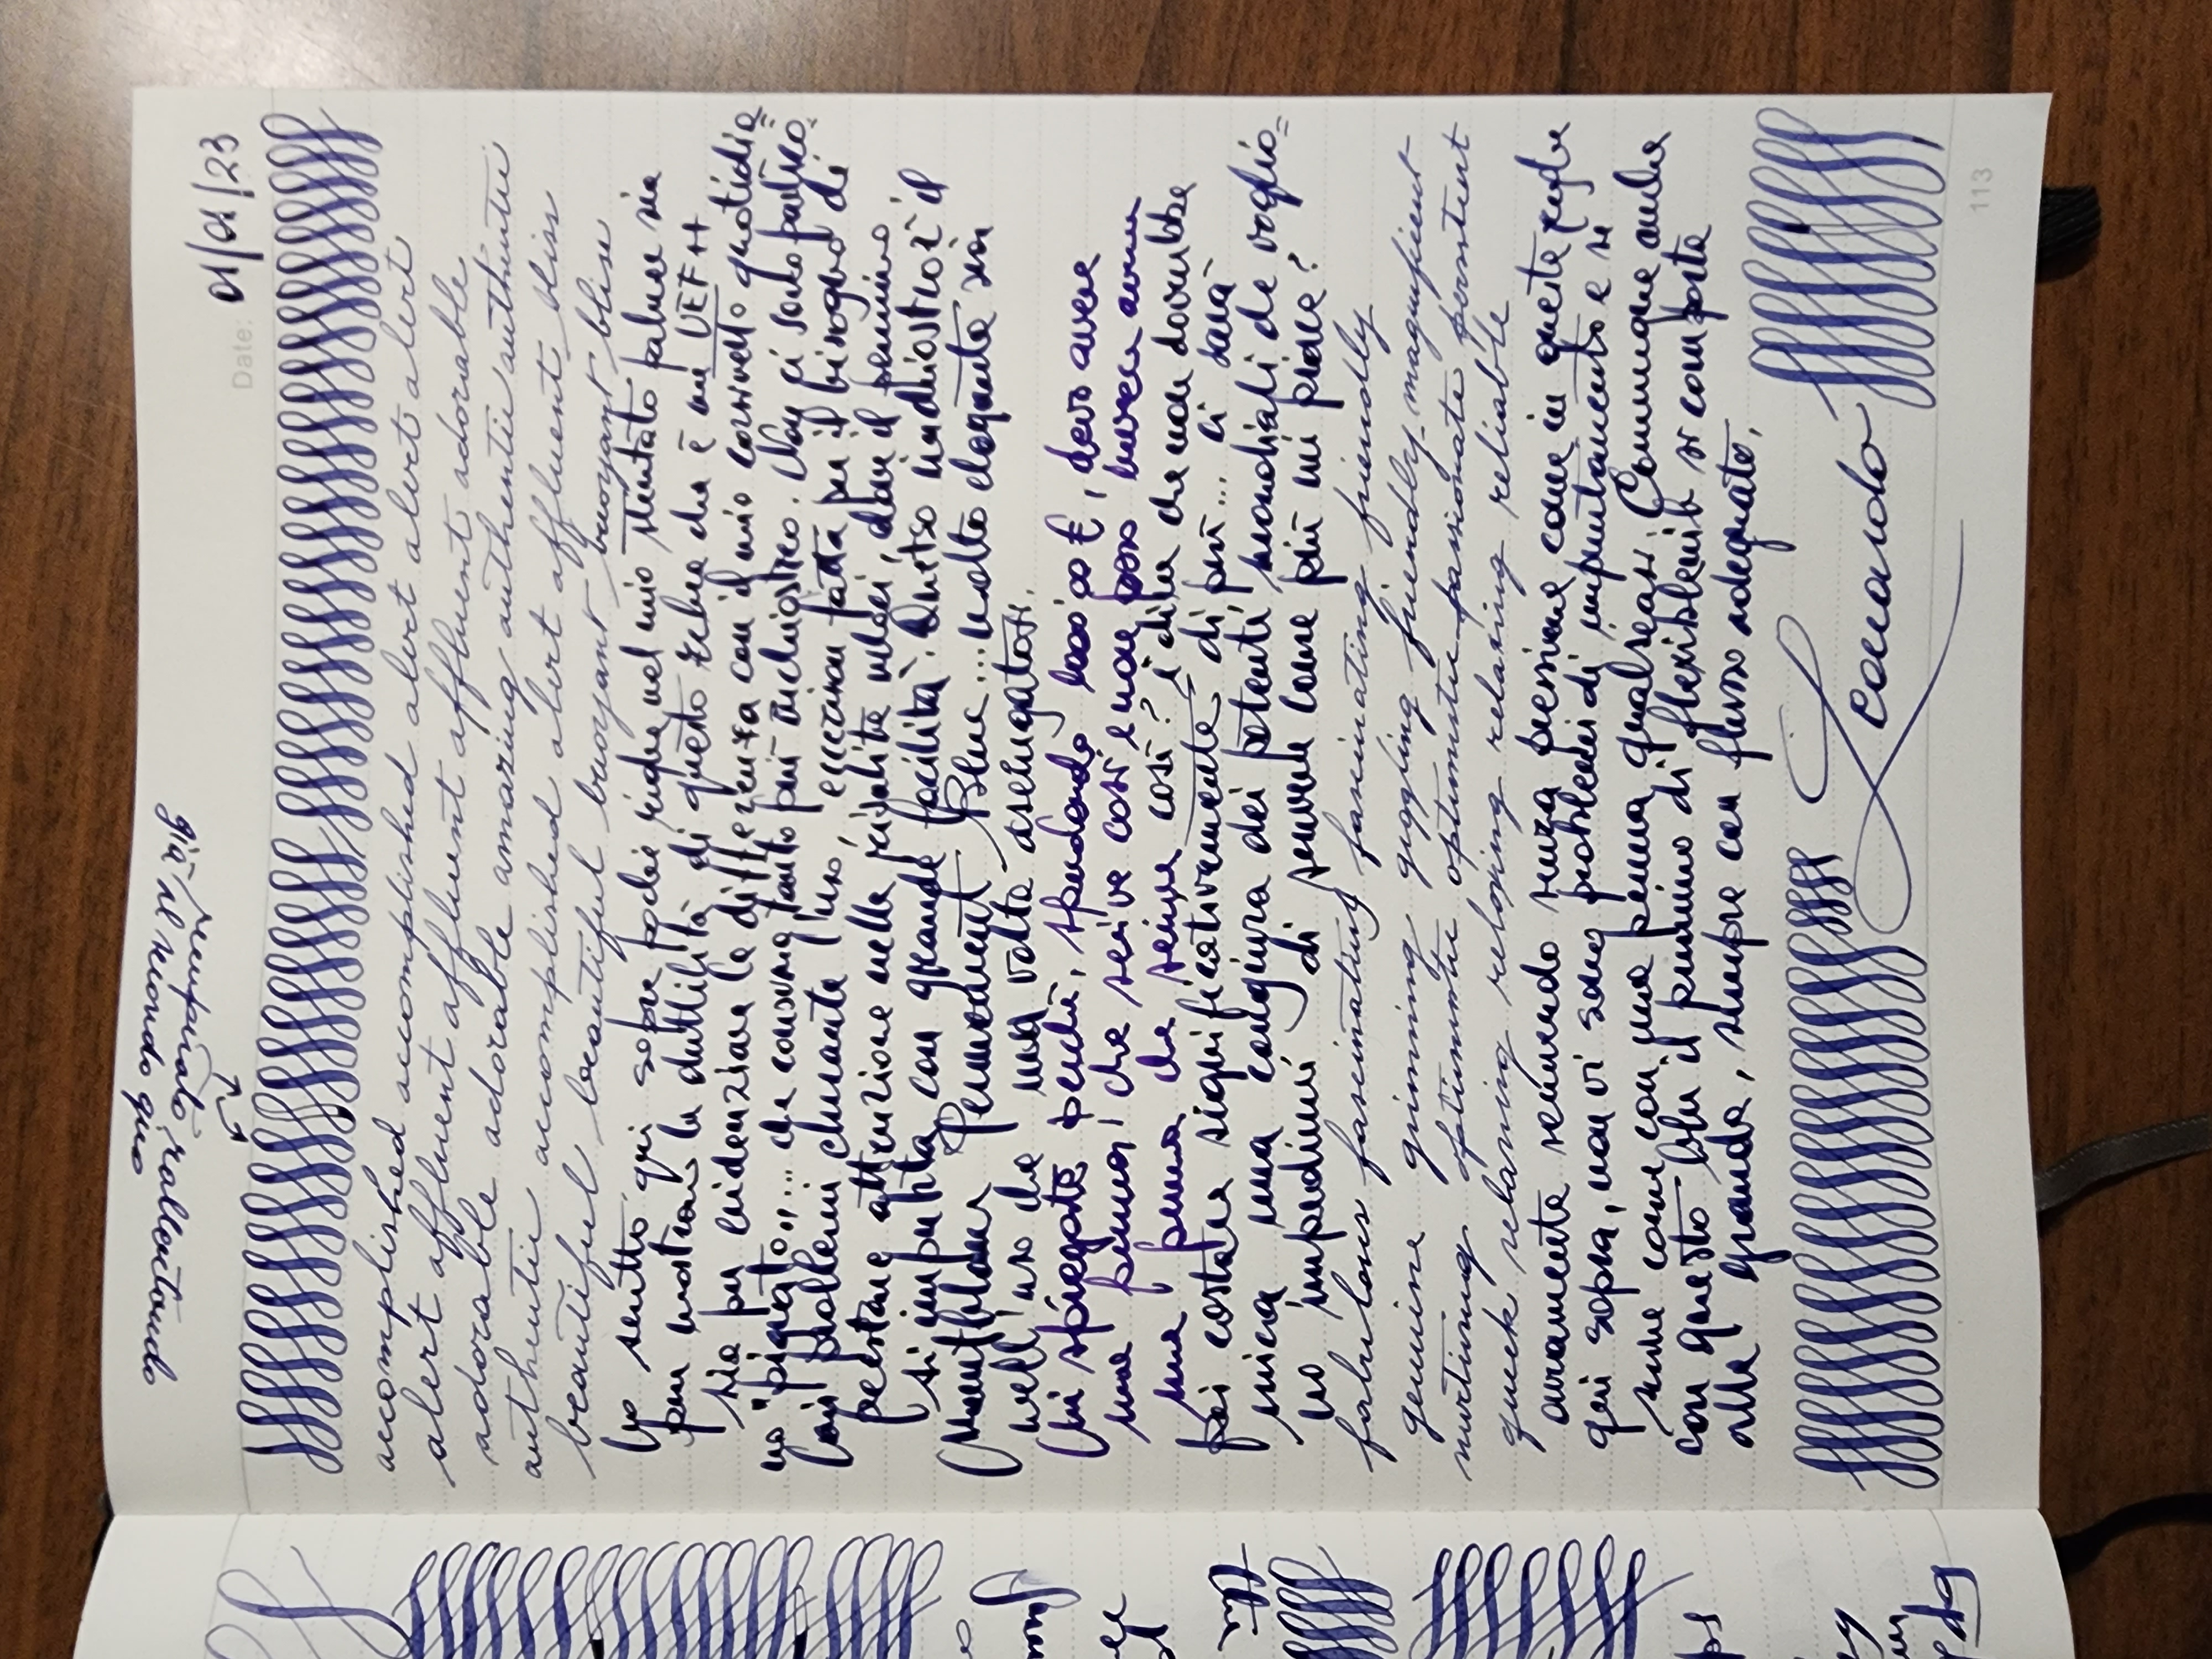 già riempiato, rallentando
il secondo giro
Date: 01/01/23
accomplished accomplished alert alert alert
alert affluent affluent affluent adorable
adorable adorable amazing authentic authentic
authentic accomplished alert affluent bliss
beautiful beautiful buoyant buoyant bliss
Ho scritto qui sopra poche righe nel mio stentato palmer sia
per mostrare la duttilità di questo Zebra che è un UEF++
sia per evidenziare le differenza con il mio corsivetto quotidia=
no "pigiato"... che consuma tanto più inchiostro. Non ci sono partico=
lari problemi durante l'uso, eccezion fatta per il bisogno di
prestare attenzione nella risalite veloci, dove il pennino
si impunta con grande facilità. Questo inchiostro è il
Montblanc Permanent Blue... molto elegante sia
nell'uso che una volta asciugatosi.
Mi spiegate perché, spendendo 1000 €, devo avere
una penna che scrive così e non posso invece avere
una penna che scriva così? È dire che non dovrebbe
poi costare significativamente di più... ci sarà
mica una congiura dei potenti mondiali che voglio=
no impedirmi di scrivere come più mi piace?
fabulous fascinating fascinating friendly
genuine grinning giggling friendly magnificent
nurturing optimistic optimistic passionate persistent
quick relaxing relaxing relaxing reliable
ovviamente scrivendo senza pressione come in queste righe
qui sopra, non vi sono problemi di impuntamento e si
scrive come con una penna qualsiasi. Comunque anche
con questo blu il pennino di flessibile si comporta
alla grande, sempre con flusso adeguato.
Leonardo
113